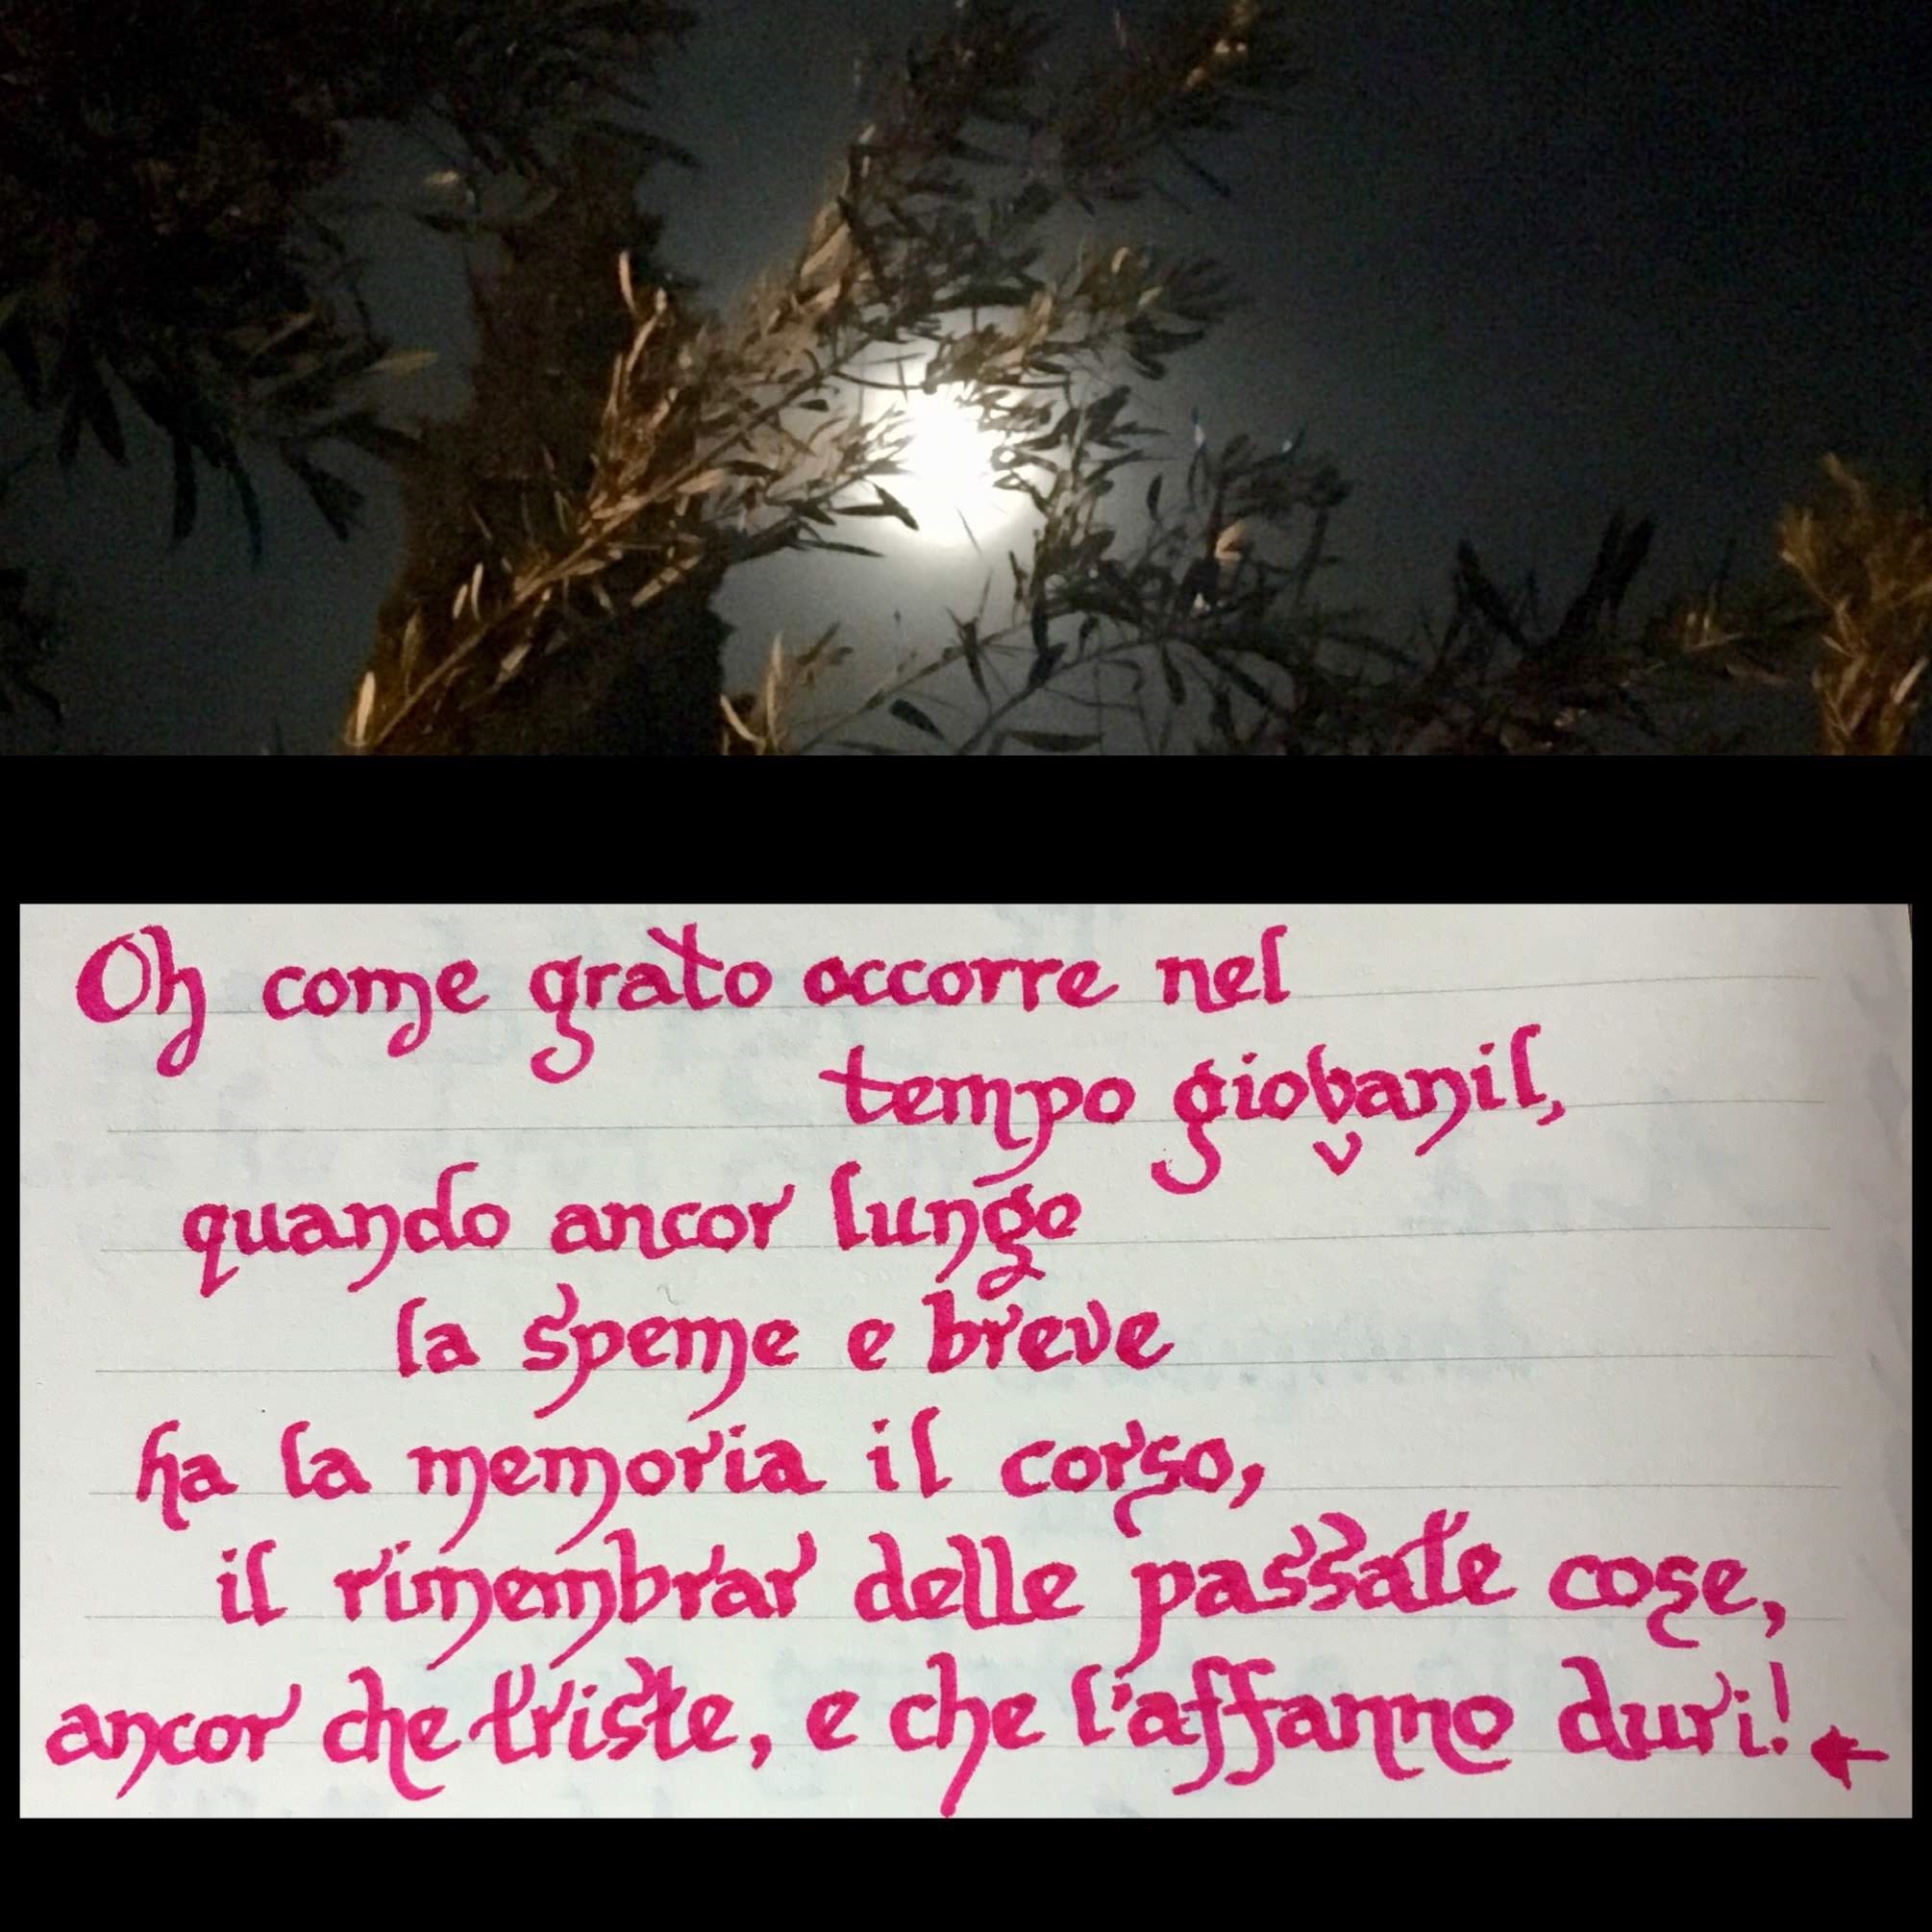 Oh come grato occorre nel
tempo giovanil,
quando ancor lungo
la speme e breve
ha la memoria il corso,
il rimembrar delle passate cose,
ancor che triste, e che l'affanno duri!